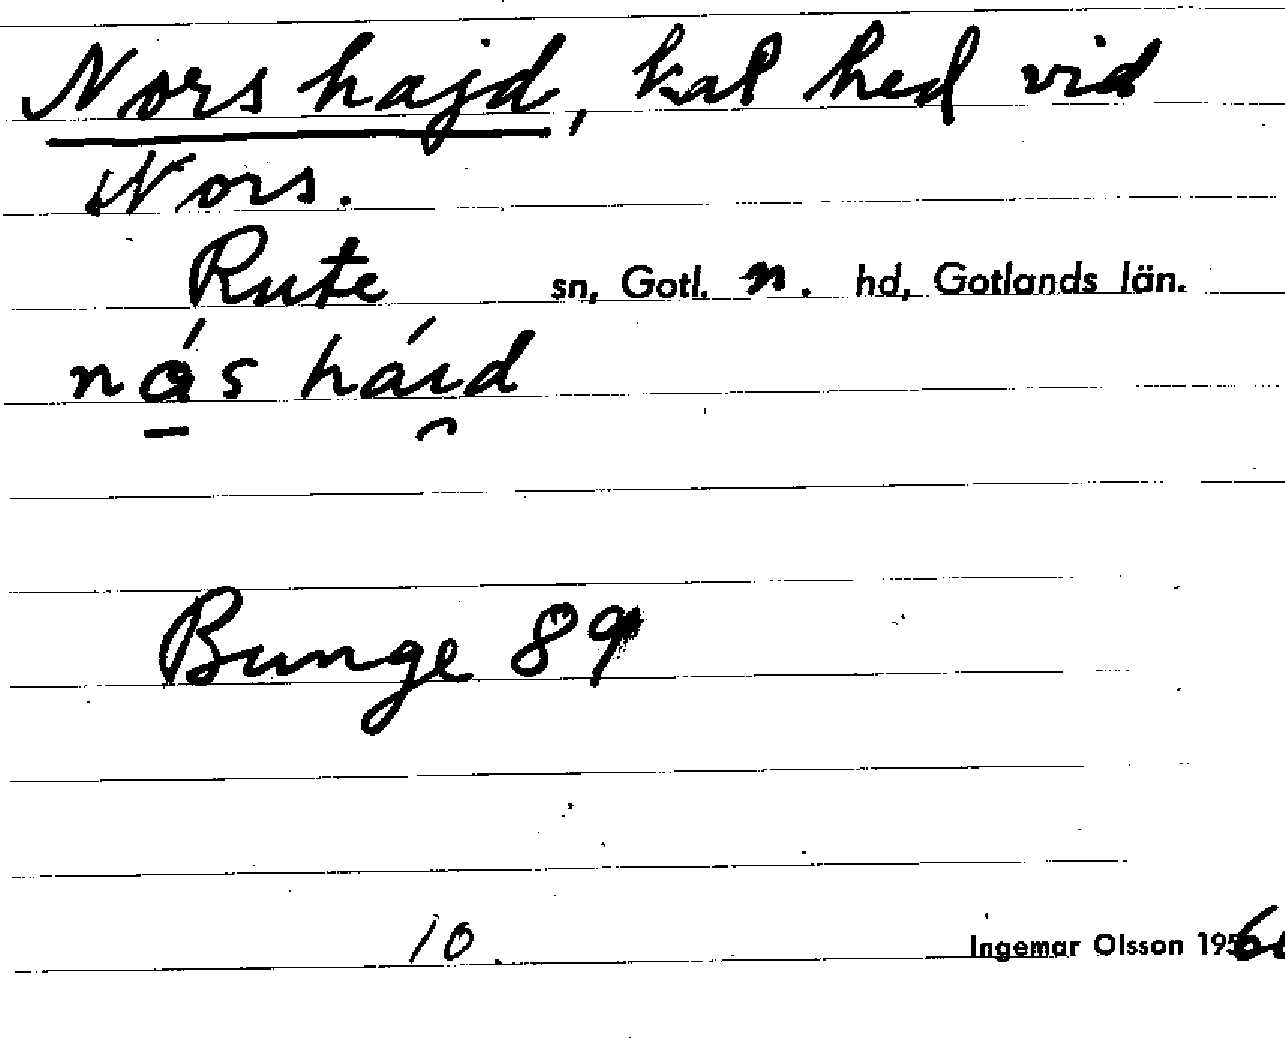 Nors hajd, kal hed vid
Nors.
Rute sn, Gotl. n. hd, Gotlands län.
ná̱s hái̯d
Bunge 89
10.
Ingemar Olsson 1960